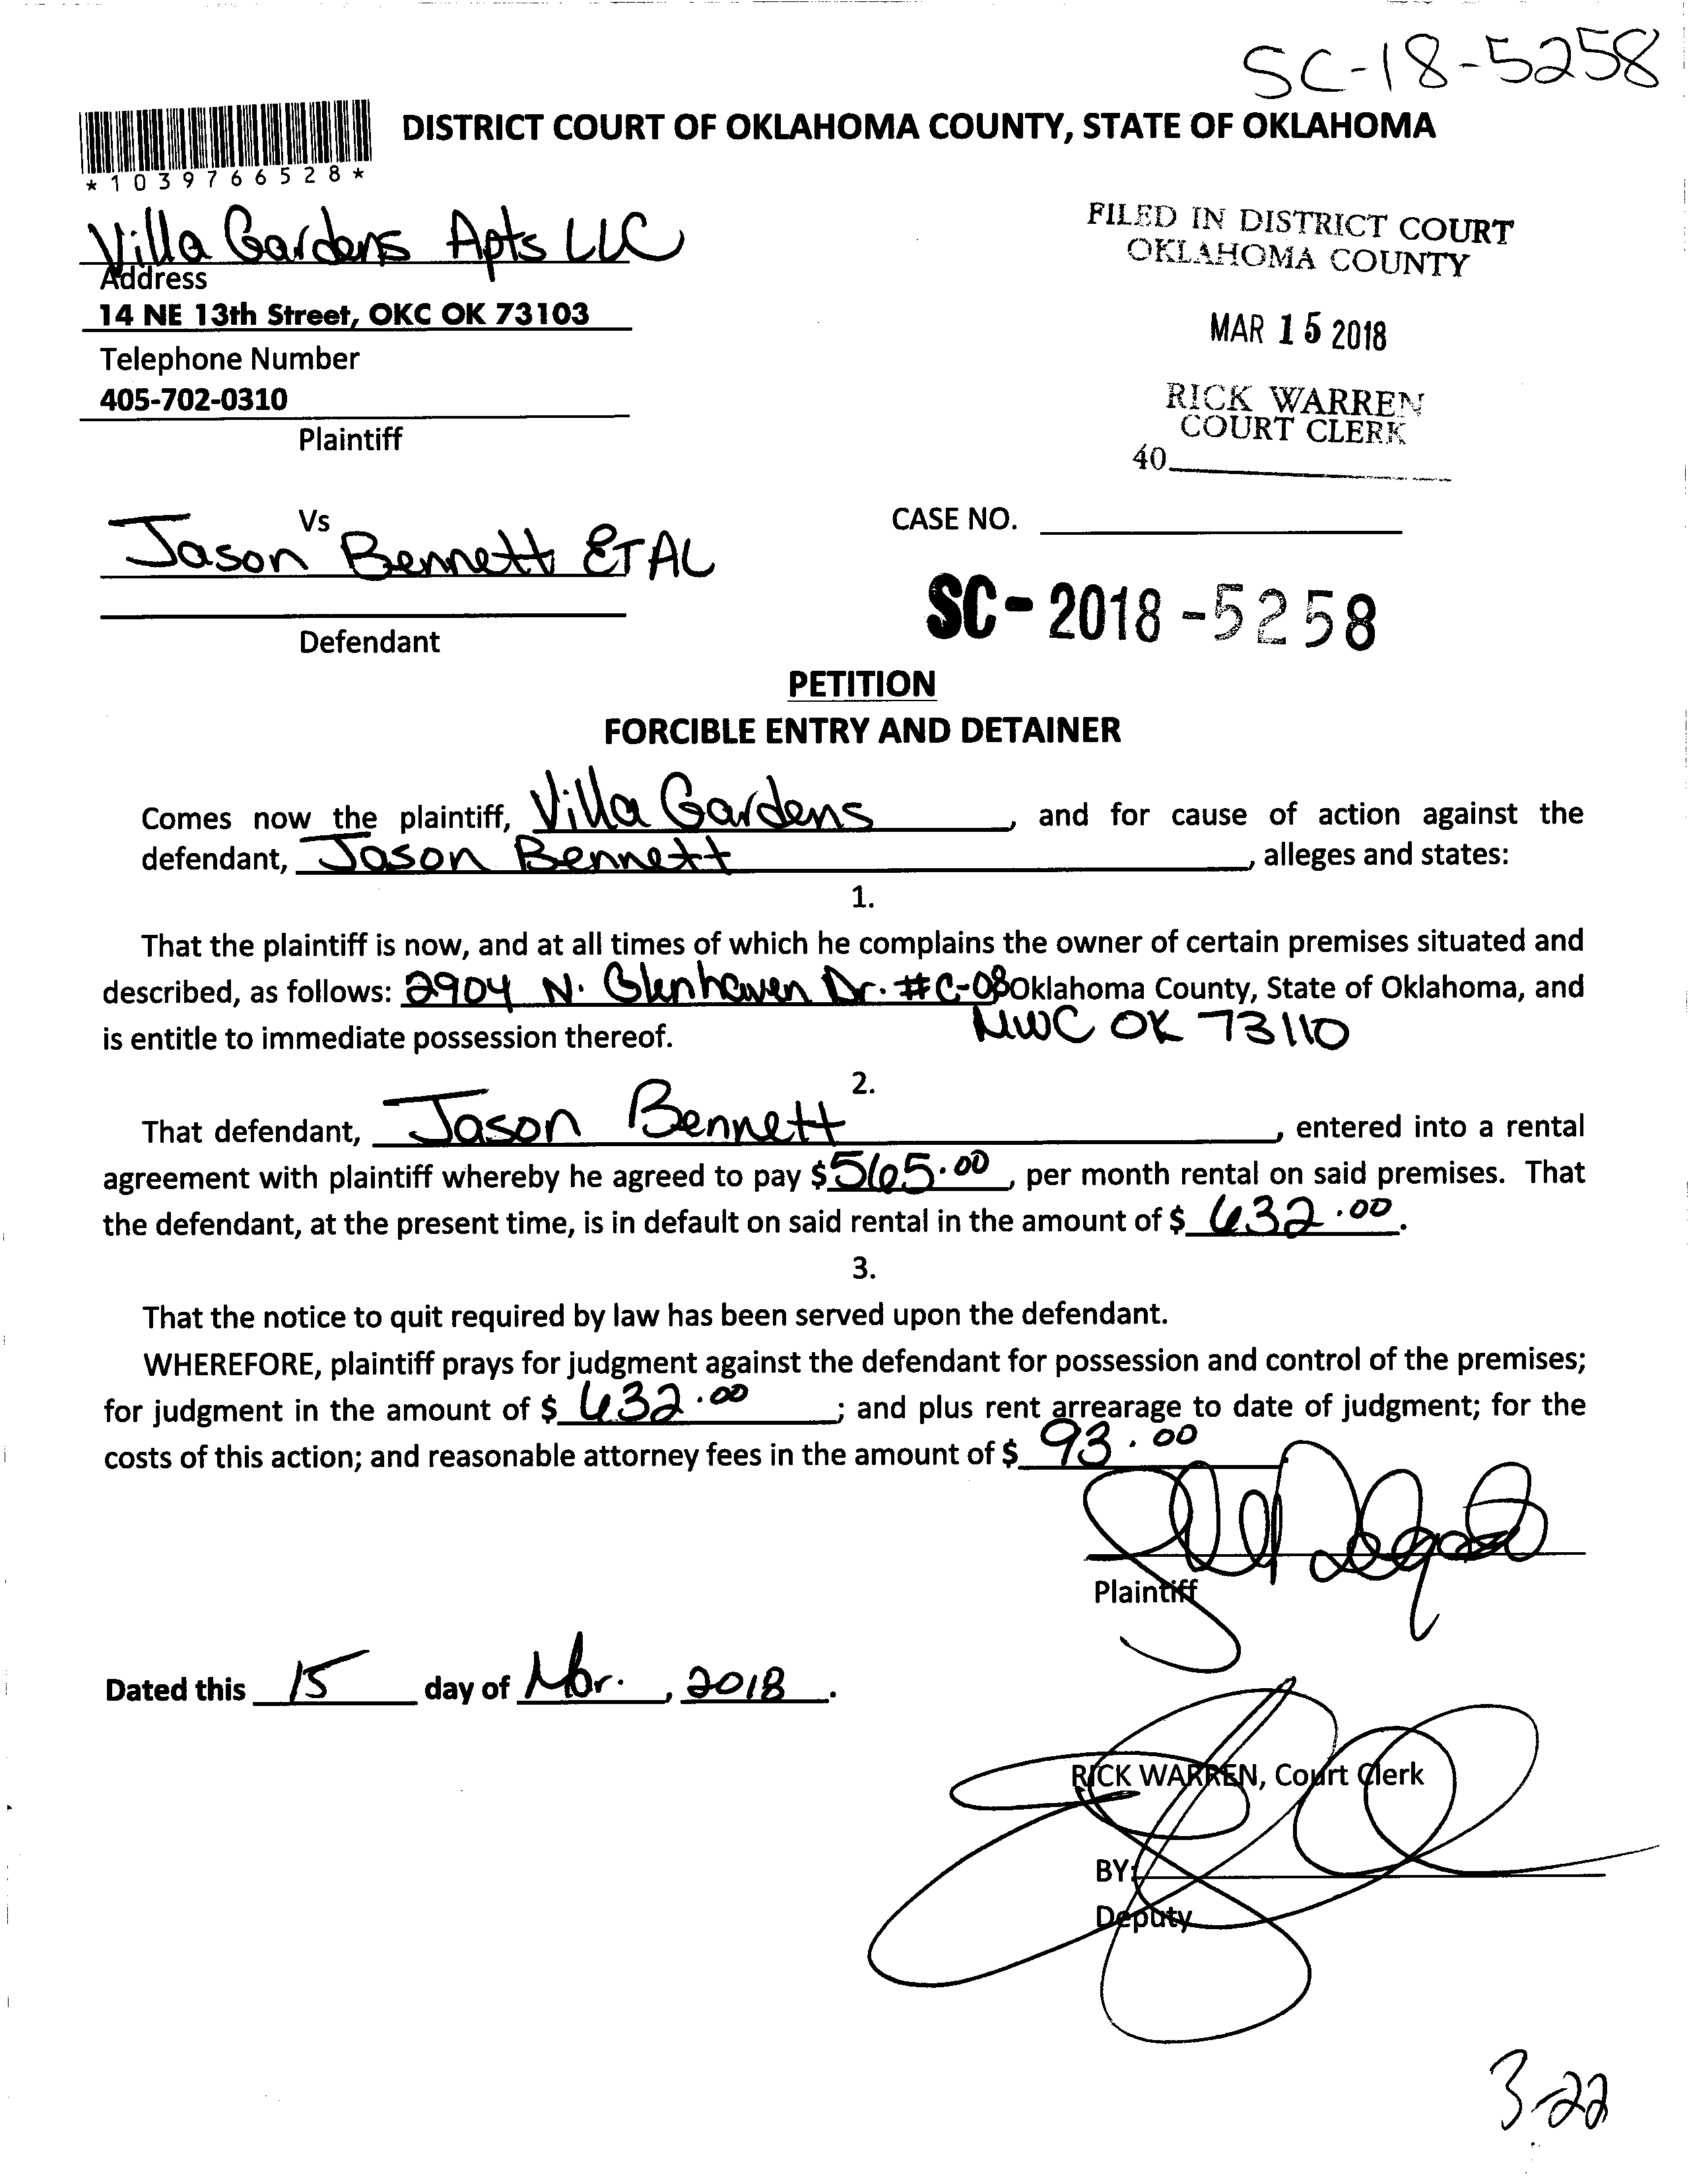 SC-18-5258
DISTRICT COURT OF OKLAHOMA COUNTY, STATE OF OKLAHOMA
*1039766528*
Villa Gardens Apts LLC
Address
14 NE 13th Street, OKC OK 73103
Telephone Number
405-702-0310
Plaintiff
FILED IN DISTRICT COURT
OKLAHOMA COUNTY
MAR 15 2018
RICK WARREN
COURT CLERK
40
Vs
Jason Bennett ETAL
Defendant
CASE NO.
SC-2018-5258
PETITION
FORCIBLE ENTRY AND DETAINER
Comes now the plaintiff, Villa Gardens, and for cause of action against the
defendant, Jason Bennett, alleges and states:
1.
That the plaintiff is now, and at all times of which he complains the owner of certain premises situated and
described, as follows: 2904 N. Glenhaven Dr. #C-08 Oklahoma County, State of Oklahoma, and
is entitle to immediate possession thereof. MWC OK 73110
2.
That defendant, Jason Bennett, entered into a rental
agreement with plaintiff whereby he agreed to pay $565.00, per month rental on said premises. That
the defendant, at the present time, is in default on said rental in the amount of $ 632.00.
3.
That the notice to quit required by law has been served upon the defendant.
WHEREFORE, plaintiff prays for judgment against the defendant for possession and control of the premises;
for judgment in the amount of $ 632.00; and plus rent arrearage to date of judgment; for the
costs of this action; and reasonable attorney fees in the amount of $ 93.00
Plaintiff
Dated this 15 day of Mar., 2018.
RICK WARREN, Court Clerk
BY:
Deputy
3-22